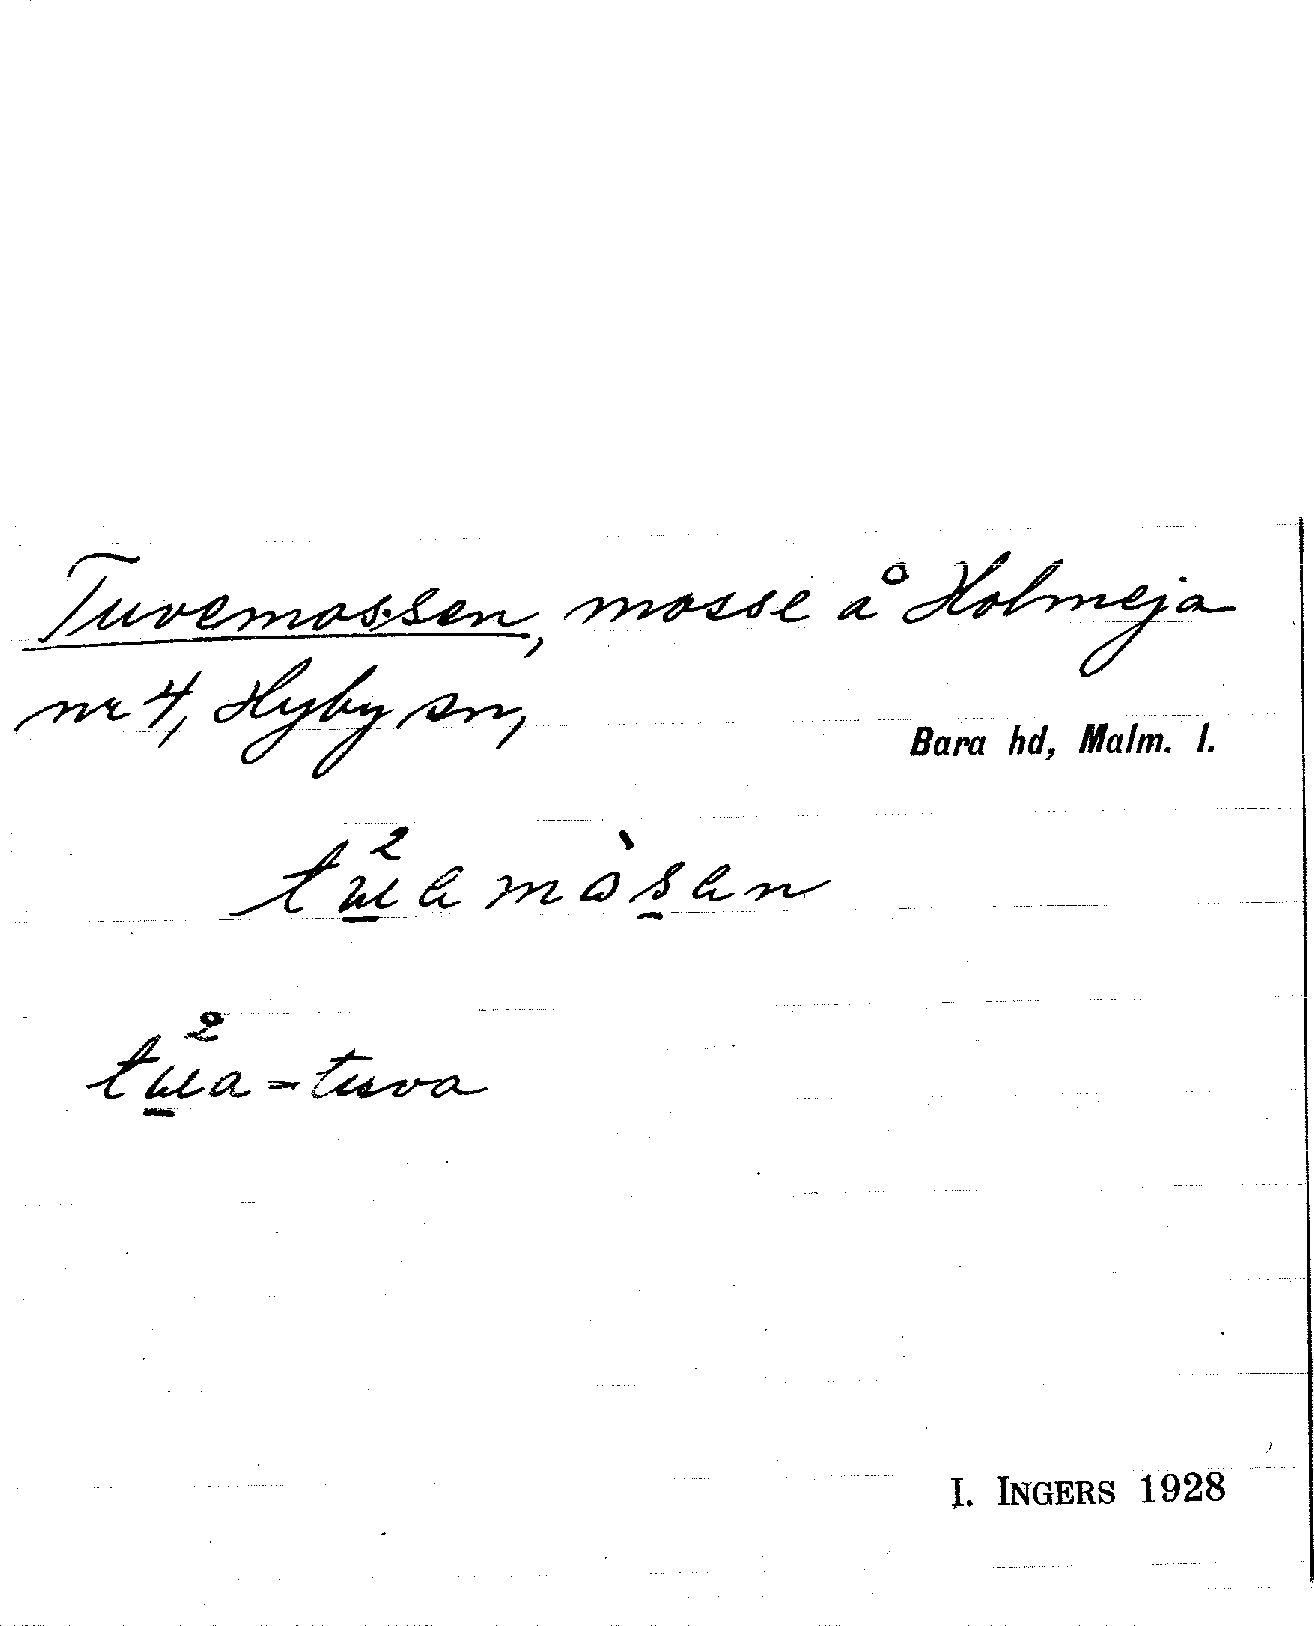 Tuvemossen, mosse å Holmeja
nr 4, Hyby sn,
Bara hd, Malm. l.
tu̲²ɐmòs̲ɐn
tu̲²a = tuva
I. INGERS 1928